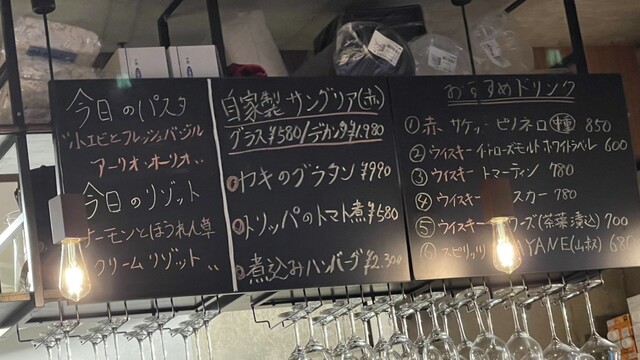 今日のパスタ
"小エビとフレッシュバジル
アーリオ・オーリオ"
今日のリゾット
ーモンとほうれん草
クリームリゾット"
自家製サングリア(赤)
グラス¥580/デカンタ¥1,980
カキのグラタン ¥990
トリッパのトマト煮 ¥580
煮込みハンバーグ ¥2,300
おすすめドリンク
① 赤 サケッ ピノネロ 850
② ウイスキー ローズモルト ホワイトラベル 600
③ ウイスキー トマーティン 780
④ ウイスキー スカー 780
⑤ ウイスキー ローズ(茶葉漬込) 700
⑥ スピリッツ YANE(山椒) 680